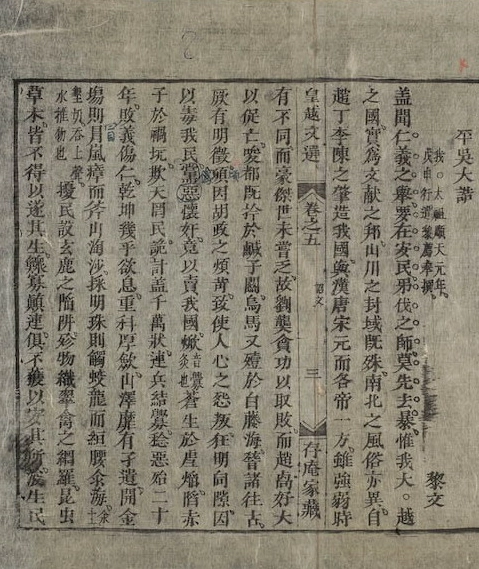 平吳大誥
我○太祖順天元年
戊申行遣黎廌奉撰
黎文
盖聞仁義之舉要在安民吊伐之師莫先去暴惟我大○越
之國實爲文献之邦山川之封域既殊南北之風俗亦異自
趙丁李陳之肇造我國與漢唐宋元而各帝一方雖強弱時
皇越文選 卷之五 誥文 三 存庵家藏
有不同而豪傑世未嘗乏故劉龑貪功以取敗而趙卨好大
以促亡唆都既擒於鹹子關烏馬又殪於白藤海嵇諸往古
厥有明徵頃因胡政之煩苛致使人心之怨叛狂明伺隙因
以毒我民黨惡懷奸竟以賣我國焮音釁灸也蒼生於虐焰䧟赤
子於禍坑欺天罔民詭計盖千萬狀連兵結釁稔惡殆二十
年敗義傷仁乾坤幾乎欲息重科厚歛山澤靡有孑遺開金
塲則冐嵐瘴而斧山淘沙採明珠則觸蛟龍而絙腰汆海汆土
墾切吞上聲水推物也擾民設玄鹿之陷阱殄物織翠禽之網羅昆虫
草木皆不得以遂其生鰥寡顚連俱不獲以安其所浚生民